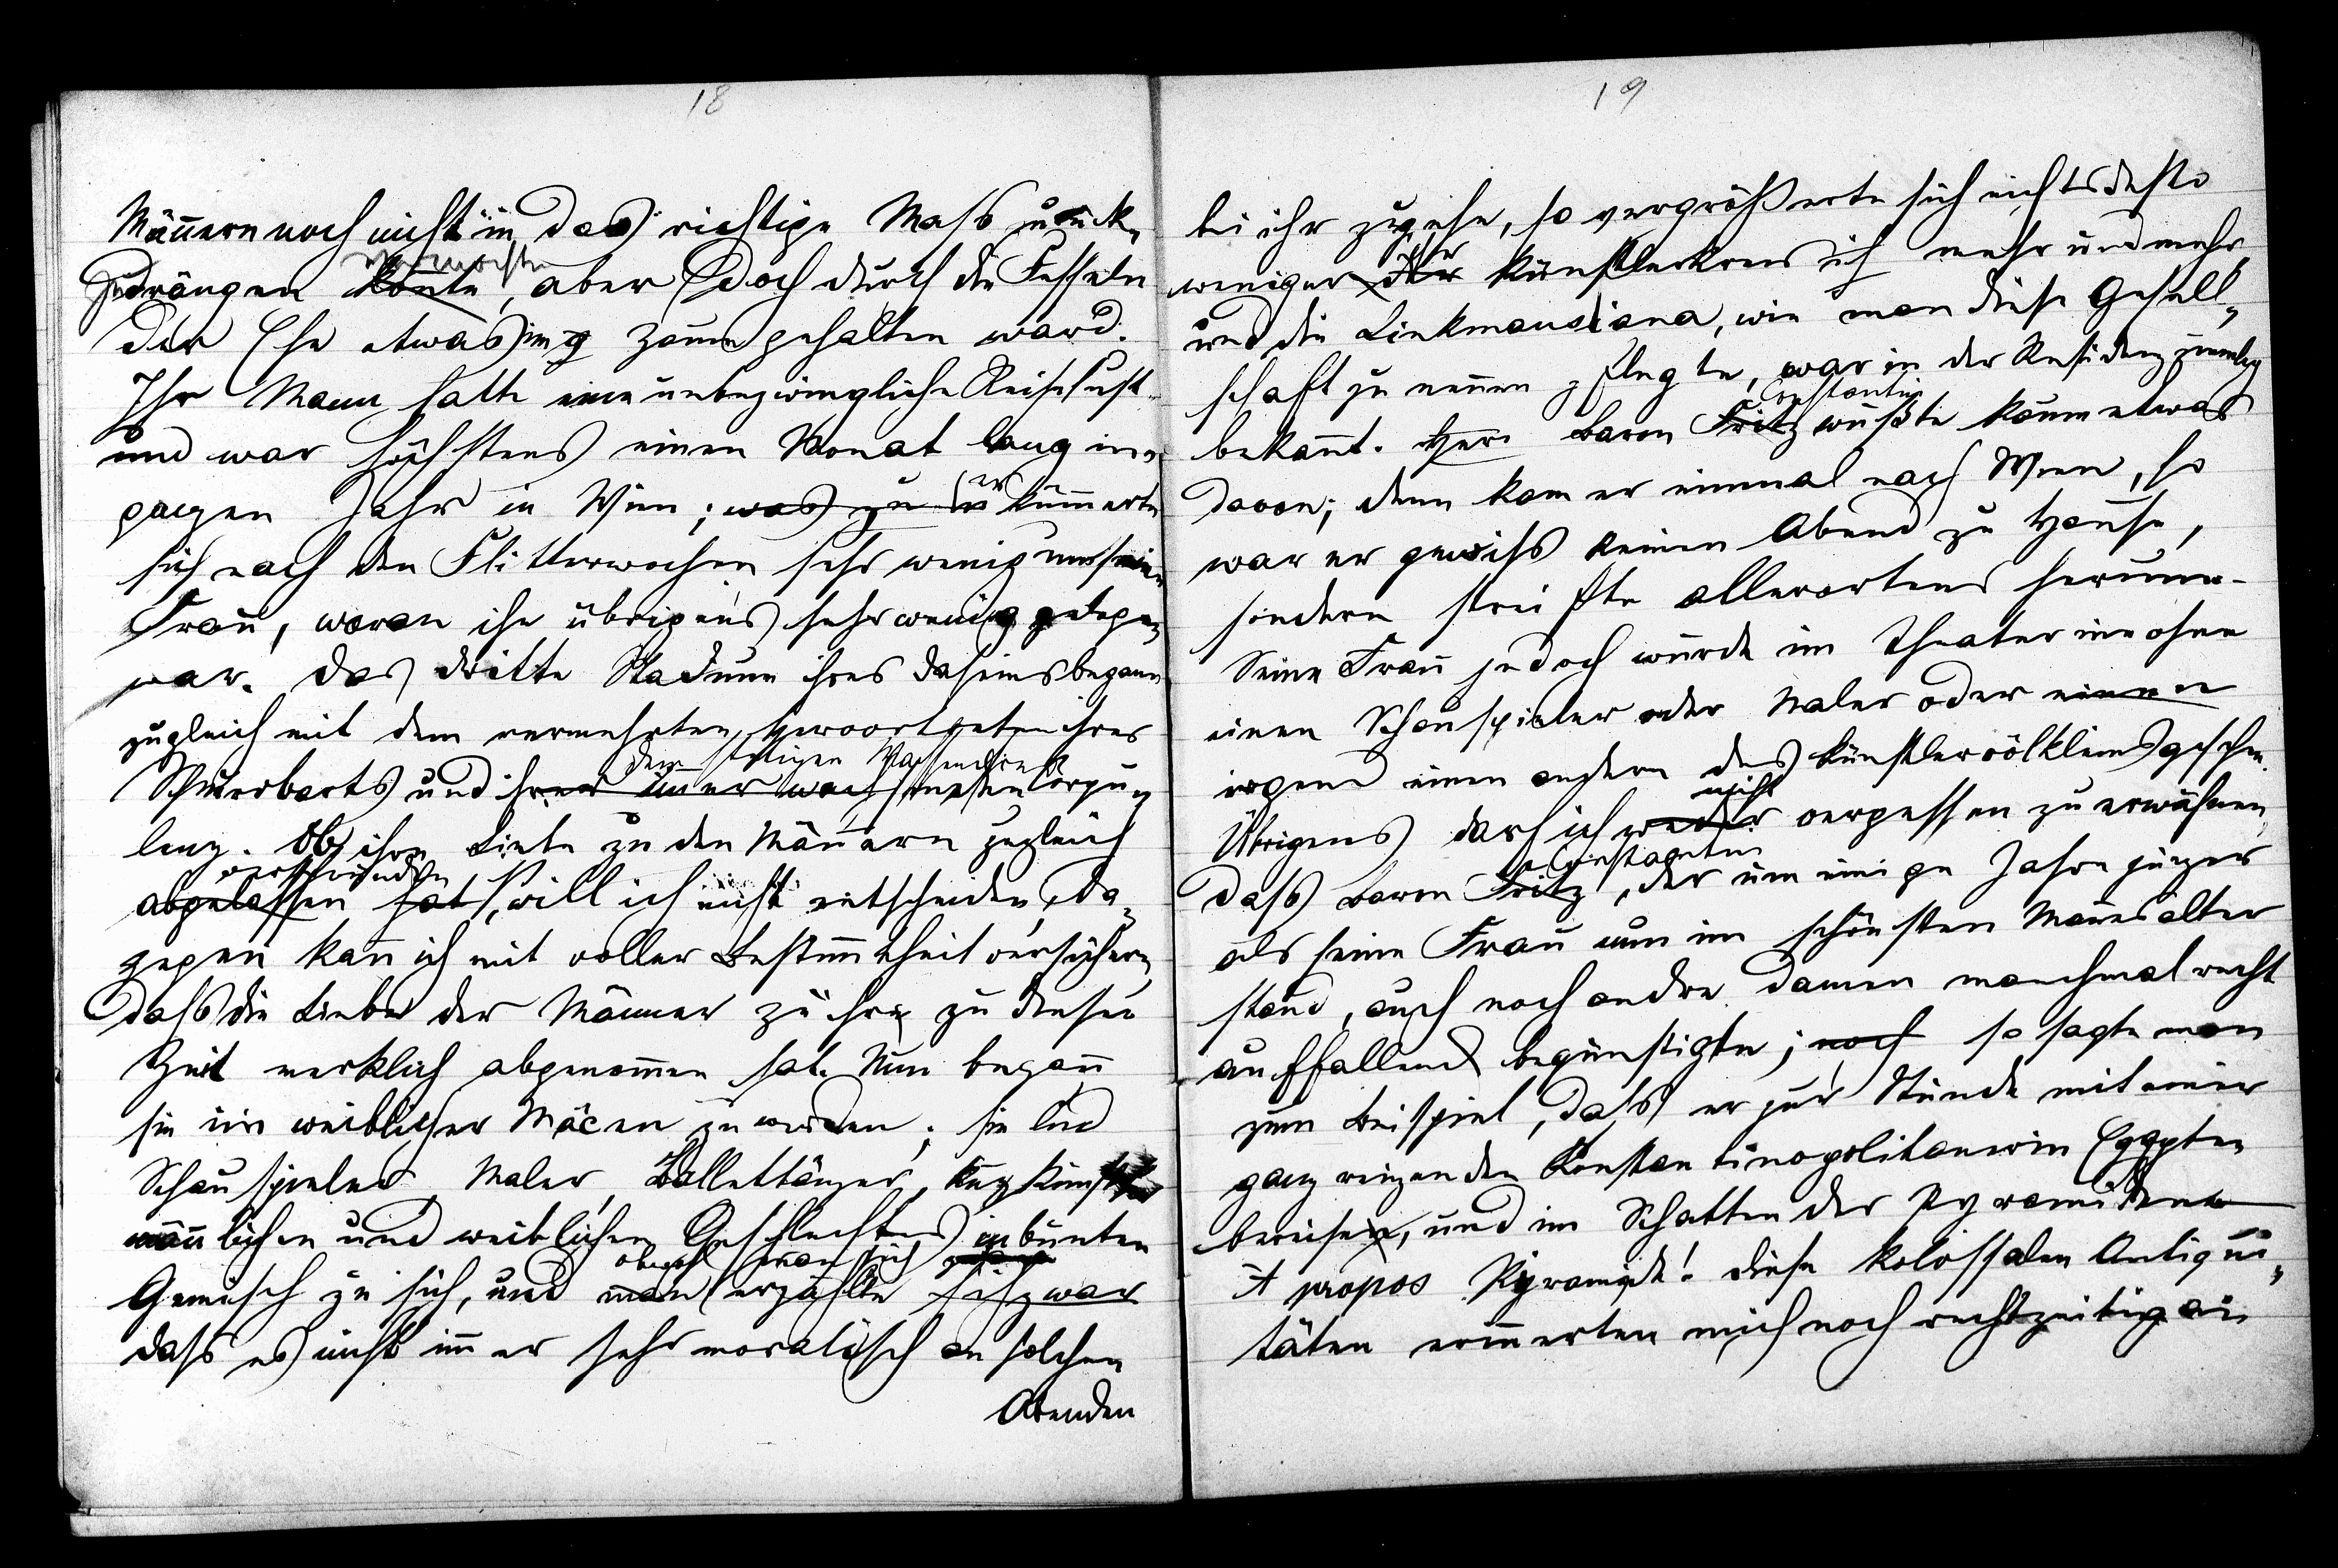 18
Mäñern noch nicht in das richtige Mass zurück-
vermochte
zudrängen koñte, aber doch durch die Fesseln
der Ehe etwas im Zaum gehalten ward.
Ihr Mann hatte eine unbezwingliche Reiselust
und war höchstens einen Monat lang im
ganzen Jahr in Wien; was zu er kümmerte
sich nach den Flitterwochen sehr wenig um seine
Frau, woran ihr übrigens sehr wenig gelegen
war. Das dritte Stadium ihres Daseins begann
zugleich mit dem vermehrten Hervortreten ihres
dem stetigen Wachsen ihrer
Schnurrbarts und ihrer im̄er wachsenden Corpu-
lenz. Ob ihre Liebe zu den Mäñern zugleich
verschwunden
abgelassen hat, will ich nicht entscheiden, da-
gegen kañ ich mit voller Bestim̄theit versichern,
dass die Liebe der Männer zu ihr zu dieser
Zeit merklich abgenom̄en hat. Nun begañ
sie ein weiblicher Mäcen zu werden; sie lud
Schauspieler, Maler, Ballettänzer, kurz Künstler
mäñlichen und weiblichen Geschlechtes in bunten
obwol man sich
Gemisch zu sich, und man erzählte sich zwar
dass es nicht im̄er sehr moralisch an solchen
Abenden
19
bei ihr zugehe, so vergrößerte sich nichtsdesto
ihr
weniger der Künstlerkreis sich mehr und mehr,
und die Linkmausiana, wie man diese Gesell-
schaft zu neñen pflegte, war in der Residenz ziemlich
Constantin
bekañt. Herr Baron Fritz wußte kaum etwas
davon; denn kam er einmal nach Wien, so
war er gewiss keinen Abend zu Hause,
sondern streifte allerorten herum.
Seine Frau jedoch wurde im Theater nie ohne
einen Schauspieler oder Maler oder einen
irgend einen andern des Künstlervölkleins gesehen.
nicht
Übrigens darf ich weder vergessen zu erwähnen,
Constantin
dass Baron Fritz, der um einige Jahre jünger
als seine Frau nun im schönsten Mañesalter
stand, auch noch andre Damen manchmal recht
auffallend begünstigte; noch so sagte man
zum Beispiel, dass er zur Stunde mit einer
ganz reizenden Konstantinopolitanerin Egypten
bereise, und im Schatten der Pyramiden
A propos Pyramide! Diese kolossalen Antiqui-
täten erin̄erten mich noch rechtzeitig an